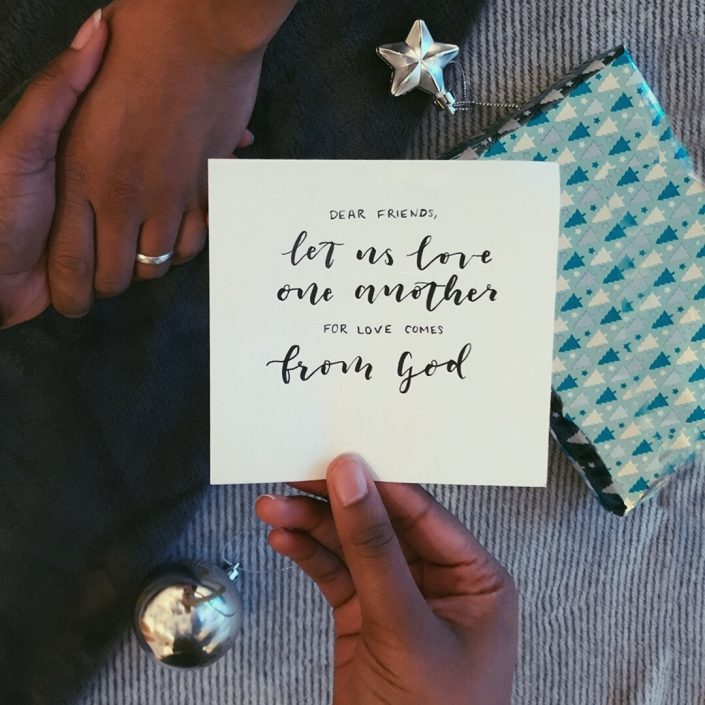 DEAR FRIENDS,
let us love
one another
FOR LOVE COMES
from God